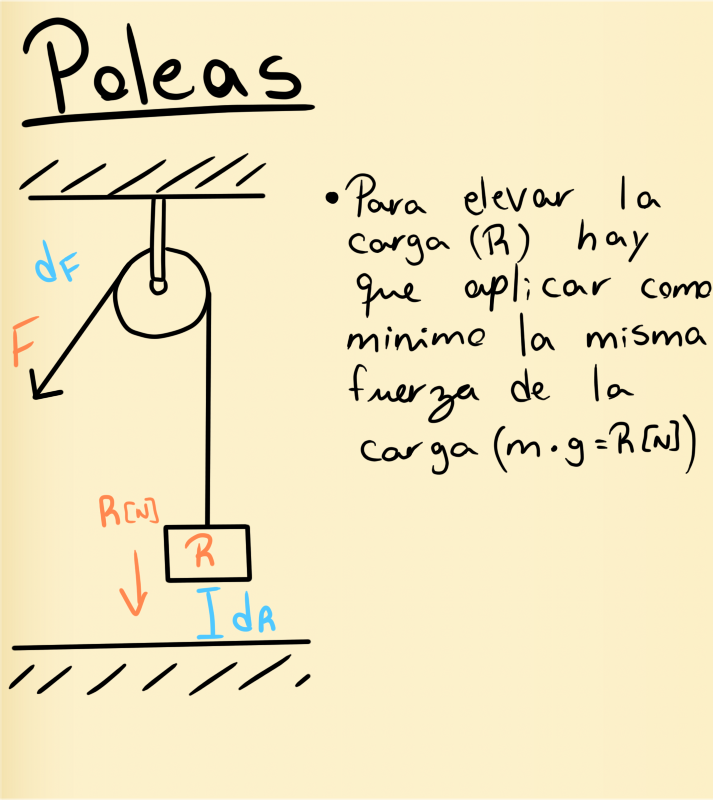 Poleas
• Para elevar la
carga (R) hay
que aplicar como
minimo la misma
fuerza de la
carga (m·g=R[N])
dF
F
R[N]
R
dR